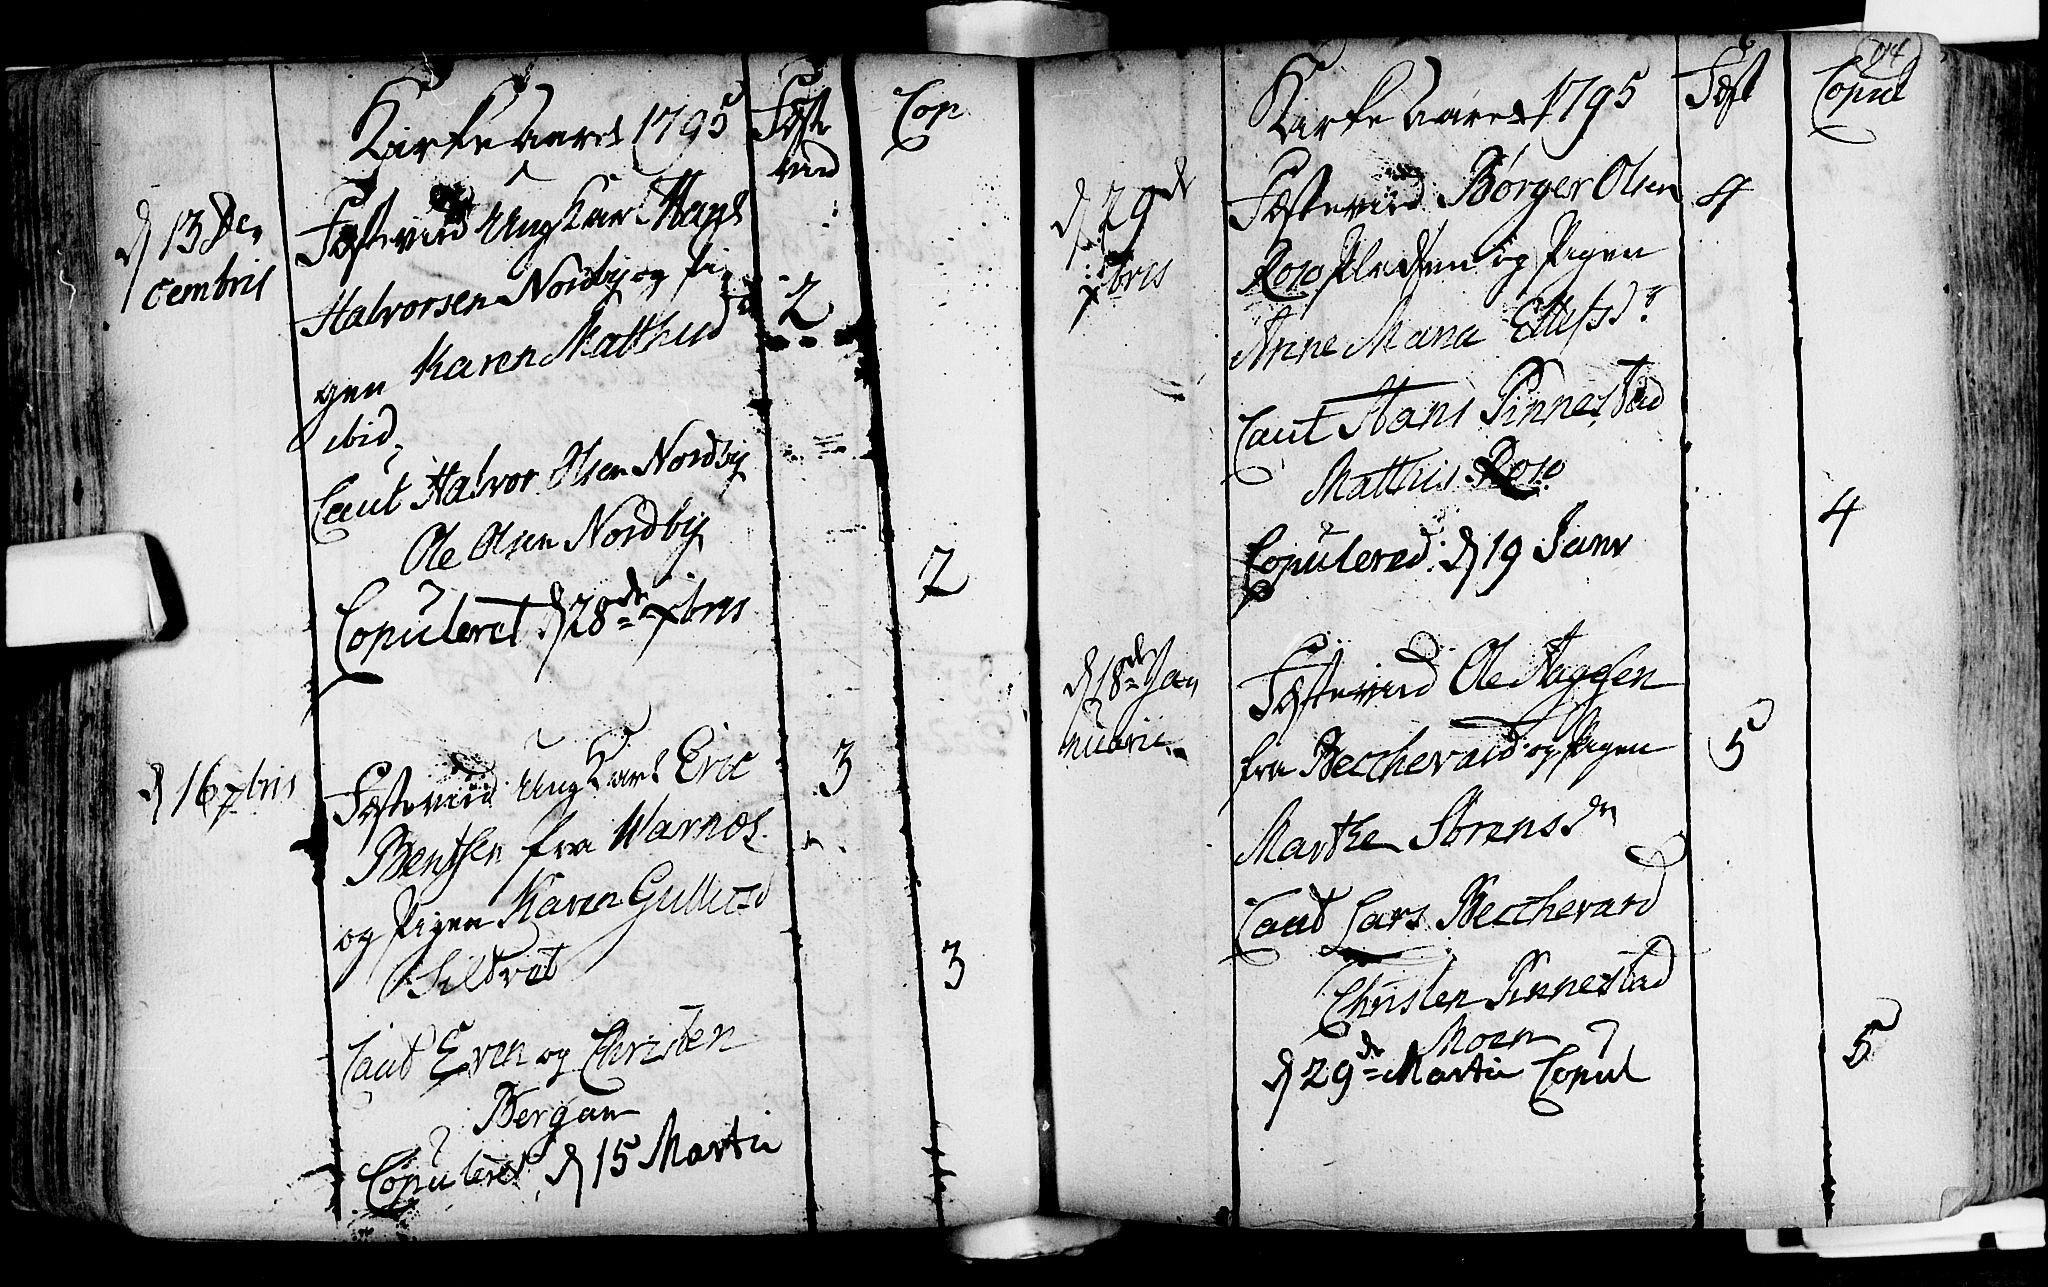 Kirke aaret 1795
Fæste
vied
Cop
d 13 De,
cembris
Fæstevied Ungkar Hans
Halvorsen Nordby og Pi,
gen Karen Matthisd
ibid,
2
Caut Halvor Olsen Nordby
Ole Olsen Nordby
Copuleret d 28de Xbris
2
d 16 xbris
Fæstevied Ungkarl Eric
Bentsen fra Warnæs
og Pigen Karen Gulbrsd
Sildvet
3
3
Caut Even og Christen
Bergan
Copuleret d 15 Martii
Kirke Aaret 1795
Fæst
Copul
d 29de
xbris
Fæstevied Børger Olsen
Roso Pladsen og Pigen
Anne Maria Ellefsdr
4
Caut Hans Pinnestad
Matthis Roso
Copulered d 19 Janv
4
d 18de Ja,
nuarii
Fæstevied Ole Aagesen
fra Becchevard og Pigen
Marthe Sörensdr
5
Caut Lars Becchevard
Christen Pinnestad
Moen
d 29de Martii Copul
5